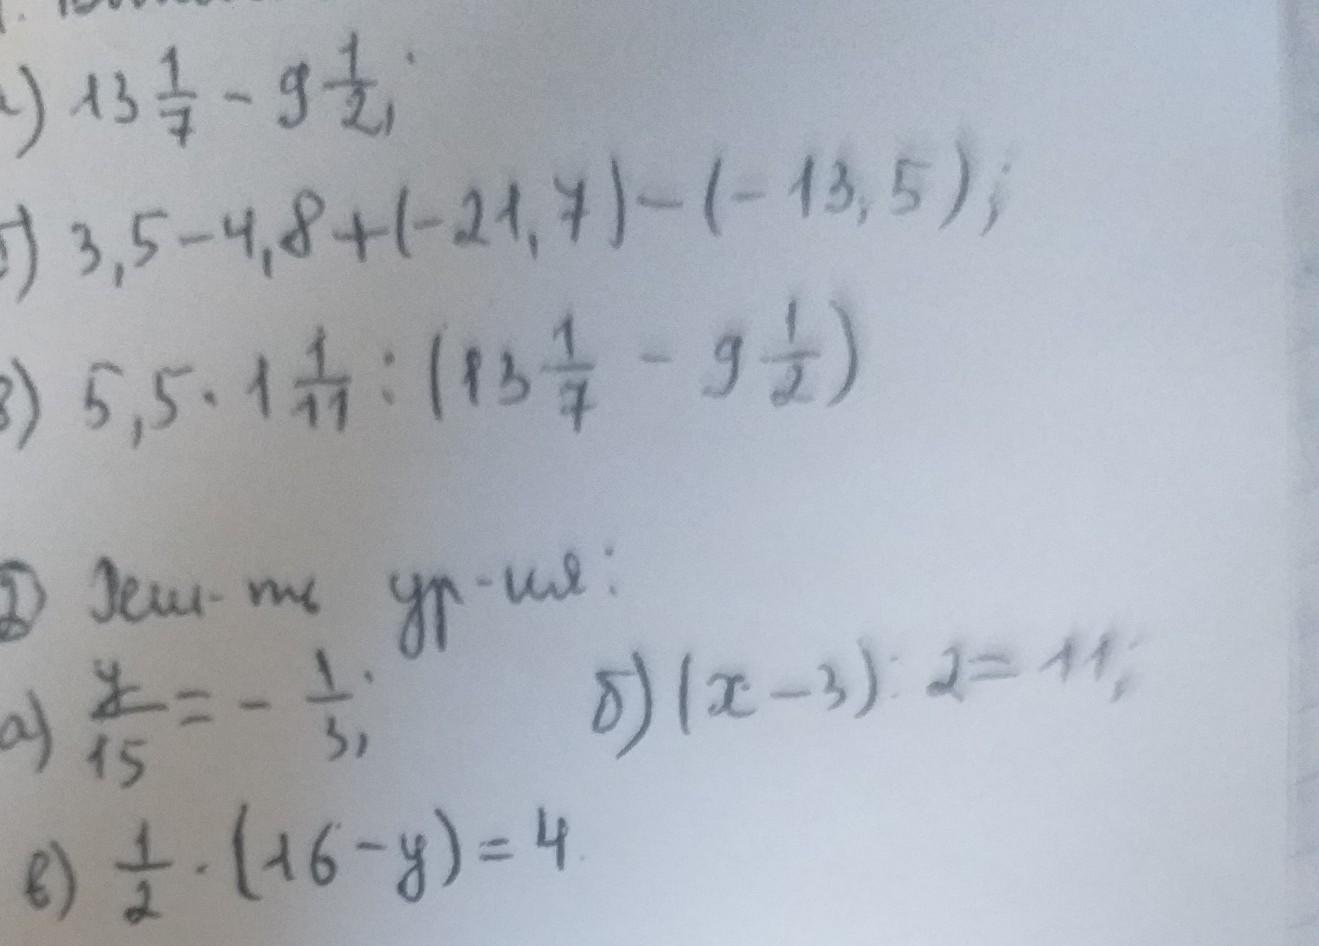 1.
а) 13 1/7 - 9 1/2;
б) 3,5-4,8+(-21,7)-(-13,5);
в) 5,5·1 1/11:(13 1/7 - 9 1/2)
2) Реш-ть ур-ия:
а) y/15 = - 1/3; б) (x-3):2=11;
в) 1/2 · (16-y)=4